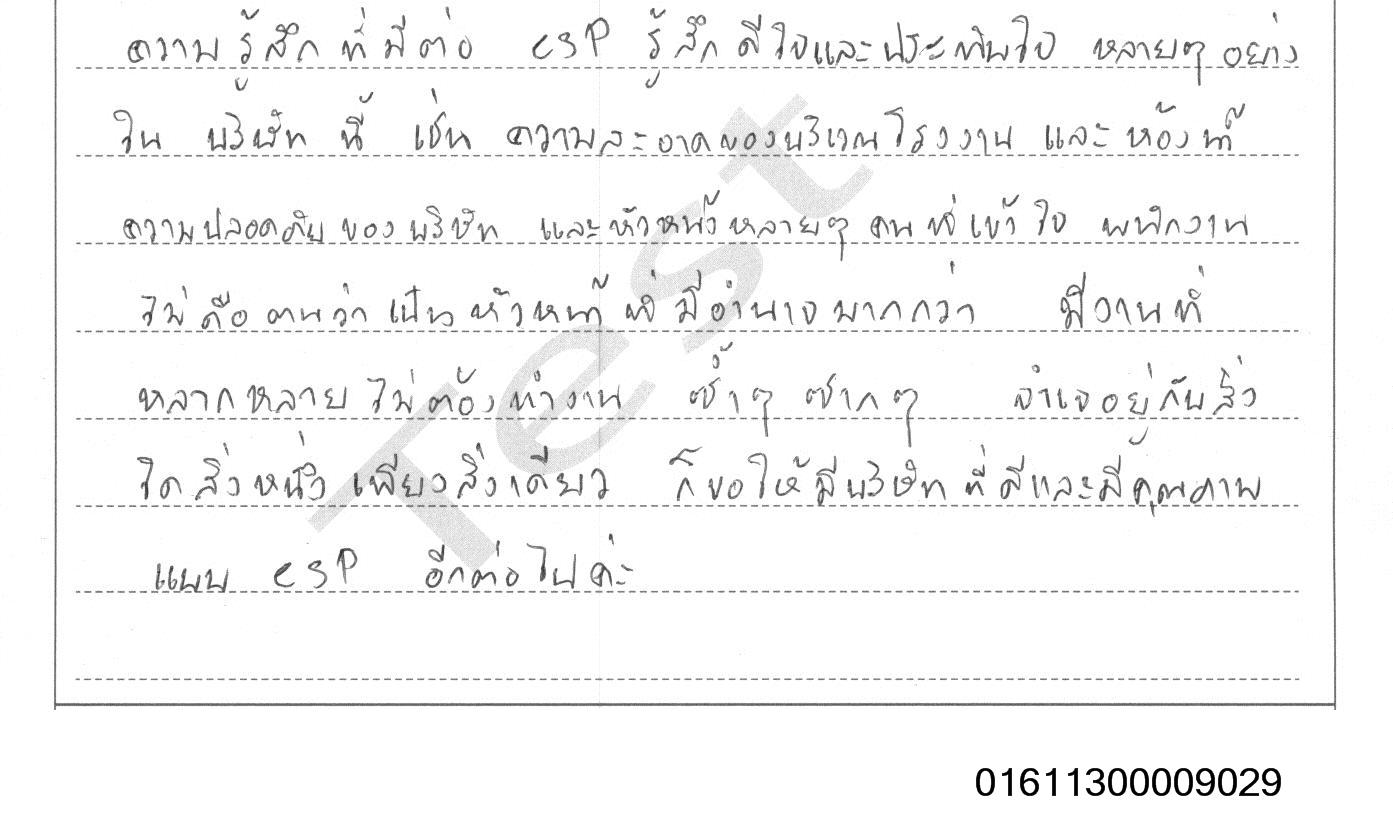 ความรู้สึกที่มีต่อ CSP รู้สึกดีใจและประทับใจ หลายๆอย่าง
ใน บริษัท นี้ เช่น ความสะอาดของบริเวณโรงงาน และห้องน้ำ
ความปลอดภัยของบริษัท และหัวหน้าหลายๆ คนที่เข้าใจ พนักงาน
ไม่ถือตนว่าเป็นหัวหน้าที่มีอำนาจมากกว่า มีงานที่
หลากหลาย ไม่ต้องทำงาน ซ้ำๆ ซากๆ จำเจอยู่กับสิ่ง
ใดสิ่งหนึ่งเพียงสิ่งเดียว ก็ขอให้มีบริษัทที่ดีและมีคุณภาพ
แบบ CSP อีกต่อไปค่ะ
Test
01611300009029